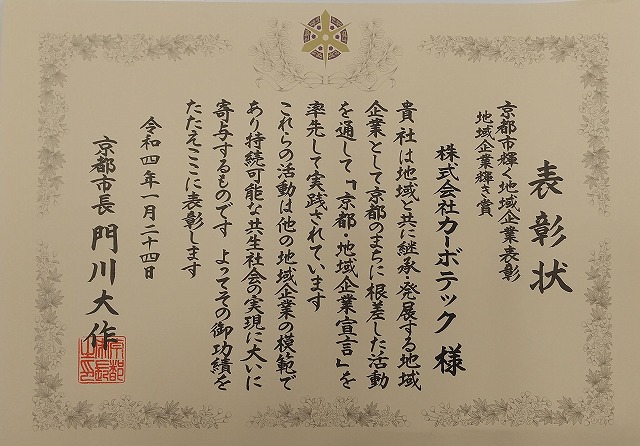 表彰状
京都市輝く地域企業表彰
地域企業輝き賞
株式会社カーボテック 様
貴社は地域と共に継承・発展する地域
企業として京都のまちに根差した活動
を通して「京都・地域企業宣言」を
率先して実践されています
これらの活動は他の地域企業の模範で
あり持続可能な共生社会の実現に大いに
寄与するものです よってその御功績を
たたえここに表彰します
令和四年一月二十四日
京都市長 門川大作